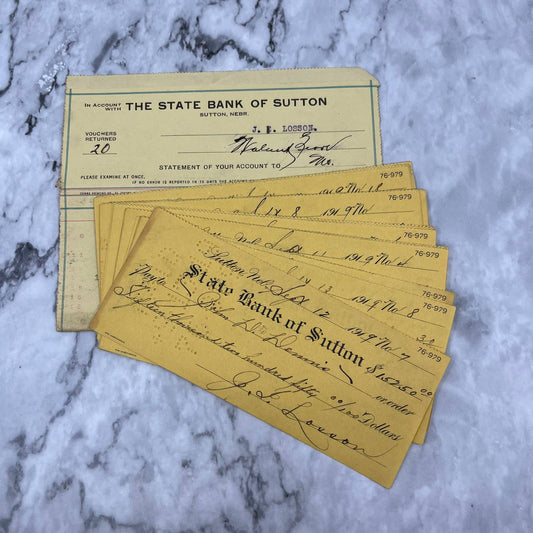 IN ACCOUNT WITH THE STATE BANK OF SUTTON
SUTTON, NEBR.
VOUCHERS RETURNED
20
J. L. LOSSON.
Walnut Grove
Mo.
STATEMENT OF YOUR ACCOUNT TO
PLEASE EXAMINE AT ONCE,
IF NO ERROR IS REPORTED IN 15 DAYS THE ACCOUNT
1919 No 18
76-979
1919 No
76-979
Sept 11 1919 No
76-979
13 1919 No 8
76-979
Sutton Neb Sept 12 1919 No 7
76-979
State Bank of Sutton
Pay to John De Dennie $15250.00
or order
Fifteen thousand two hundred fifty 00/100 Dollars
J. L. Losson